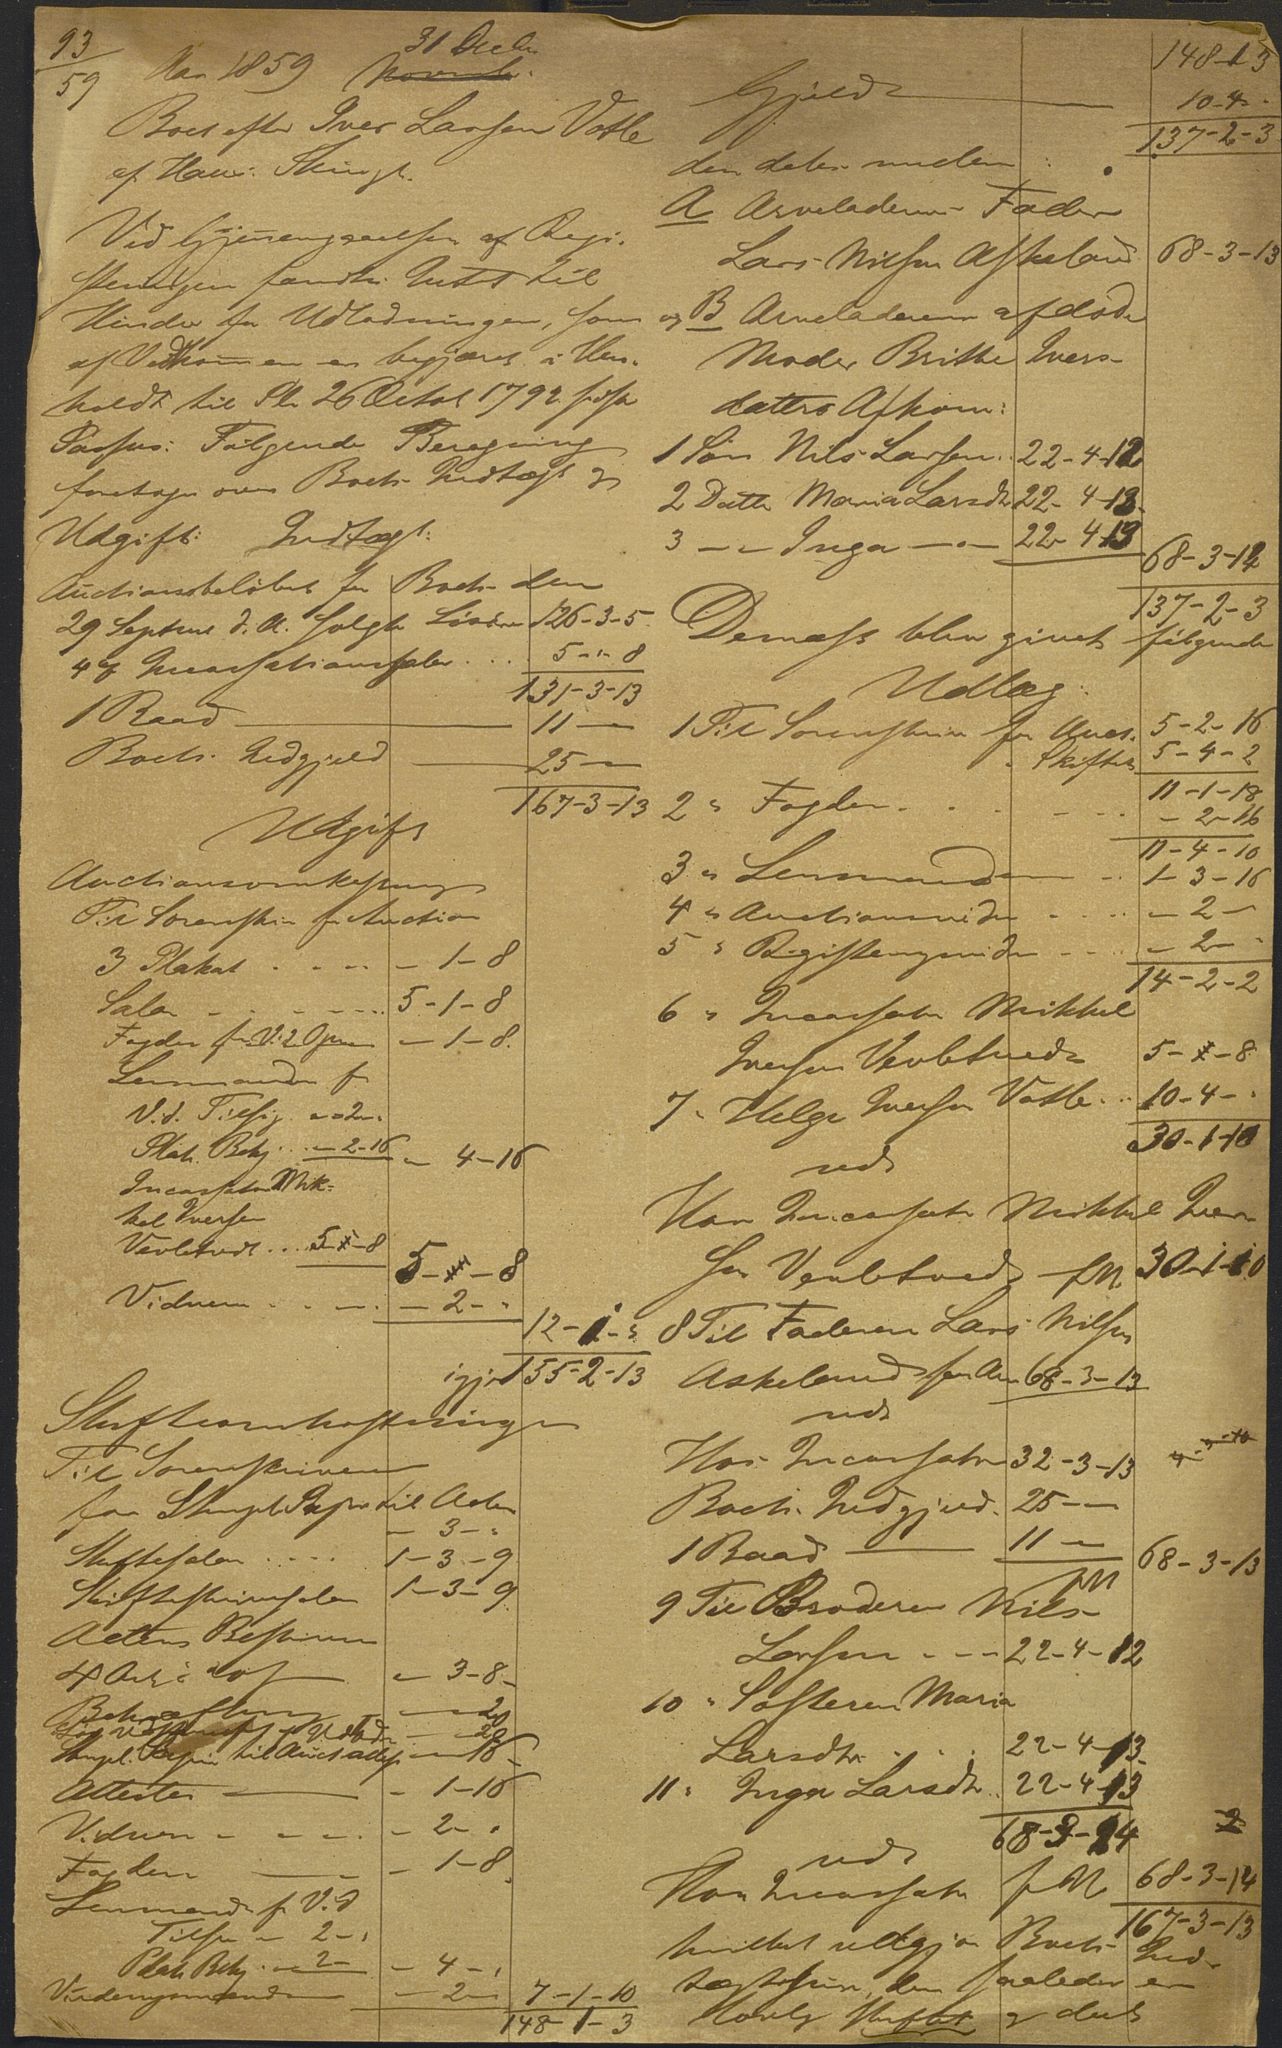 93
59
Aar 1859 31 Decbr
Boet efter Iver Larsen Votle
af Haus Skingl.
Ved Gjennemgaaelsen af Regi-
steringen fandtes Intet til
Hinder for Udlodningen, som
af Vedkommen er begjæret i Hen-
holdt til Pl. 26 Octob 1792 sidste
Passus: Følgende Beregning
foretages over Boets Indtægt og
Udgift: Indtægt:
Auctionsbeløbet for Boets den
29 Septemb d. A. solgte Løsøre 126-3-5
4% Incassationssalær .... 5-"-8
131-3-13
1 Baad 11 —
Boets Indgjeld 25 —
167-3-13
Udgift
Auctionsomkostninger
Til Sorenskriv for Auction
3 Plakat .... - 1-8
Salær ..... 5-1-8
Fogden for 2 - 1-8
Lensmanden f
V. d. Tilsig. - 2 -
Plak. Bekj. ... - 2-16 - 4-16
Incassator Mik-
kel Iversen
Vevletvedt ... 5-"-8
5-"-8
Vidnerne .... - 2-"
12-1-"
igjen 155-2-13
Skifteomkostninger
Til Sorenskriveren
for Stemplt Papir til Acten
- 3-"
Skiftesalær .... 1-3-9
Skifteskriversalær 1-3-9
Actens Beskriven
4 Ark - 3-8
Bekræftning - 20
Stempl. Papir til Auct attest - 16
Attesten - 1-16
Vidnerne - - - - 2-"
Fogden - 1-8
Lensmand f V. d
Tilsigr - 2-"
Plak Bekj. - 2 - - 4-"
Vurderingsmænd - 2 - 7-1-10
148-1-3
148-1-3
Gjeld 10-4-"
137-2-3
der deles mellem:
A Arveladerens Fader
Lars Nilsen Askeland 68-3-13
og B Arveladerens afdøde
Moder Brithe Ivers-
datters Afkom:
1 Søn Nils Larsen .. 22-4-12
2 Datter Maria Larsdtr 22-4-13
3 — " — Inga — " — 22-4-13
68-3-14
137-2-3
Dernæst blev givet følgende
Udlæg:
1 Til Sorenskriven for Auct. 5-2-16
" Skiftet 5-4-2
11-1-18
2 " Fogden .... - 2-16
11-4-10
3 " Lensmanden .. 1-3-16
4 " Auctionsvidner .... - 2 -
5 " Registeringsvidner ... - 2 -
14-2-2
6 " Incassator Mikkel
Iversen Vevletvedt 5-"-8
7 " Helge Iversen Votle .. 10-4-"
30-1-10
ved
Hos Incassator Mikkel Iver-
sen Vevletvedt 30-1-10
8 Til Faderen Lars Nilsen
Askeland for Arv 68-3-13
ved
Hos Incassator 32-3-13
Boets Indgjeld. 25 —
1 Baad 11 —
68-3-13
9 Til Broderen Nils
Larsen - - - 22-4-12
10 " Søsteren Maria
Larsdtr. . . 22-4-13
11 " Inga Larsdtr .. 22-4-13
68-3-14
ved
Hos Incassator 68-3-14
167-3-13
hvilket udgjør Boets Ind-
tægtssum, den saaledes er
lovlig skiftet og delt